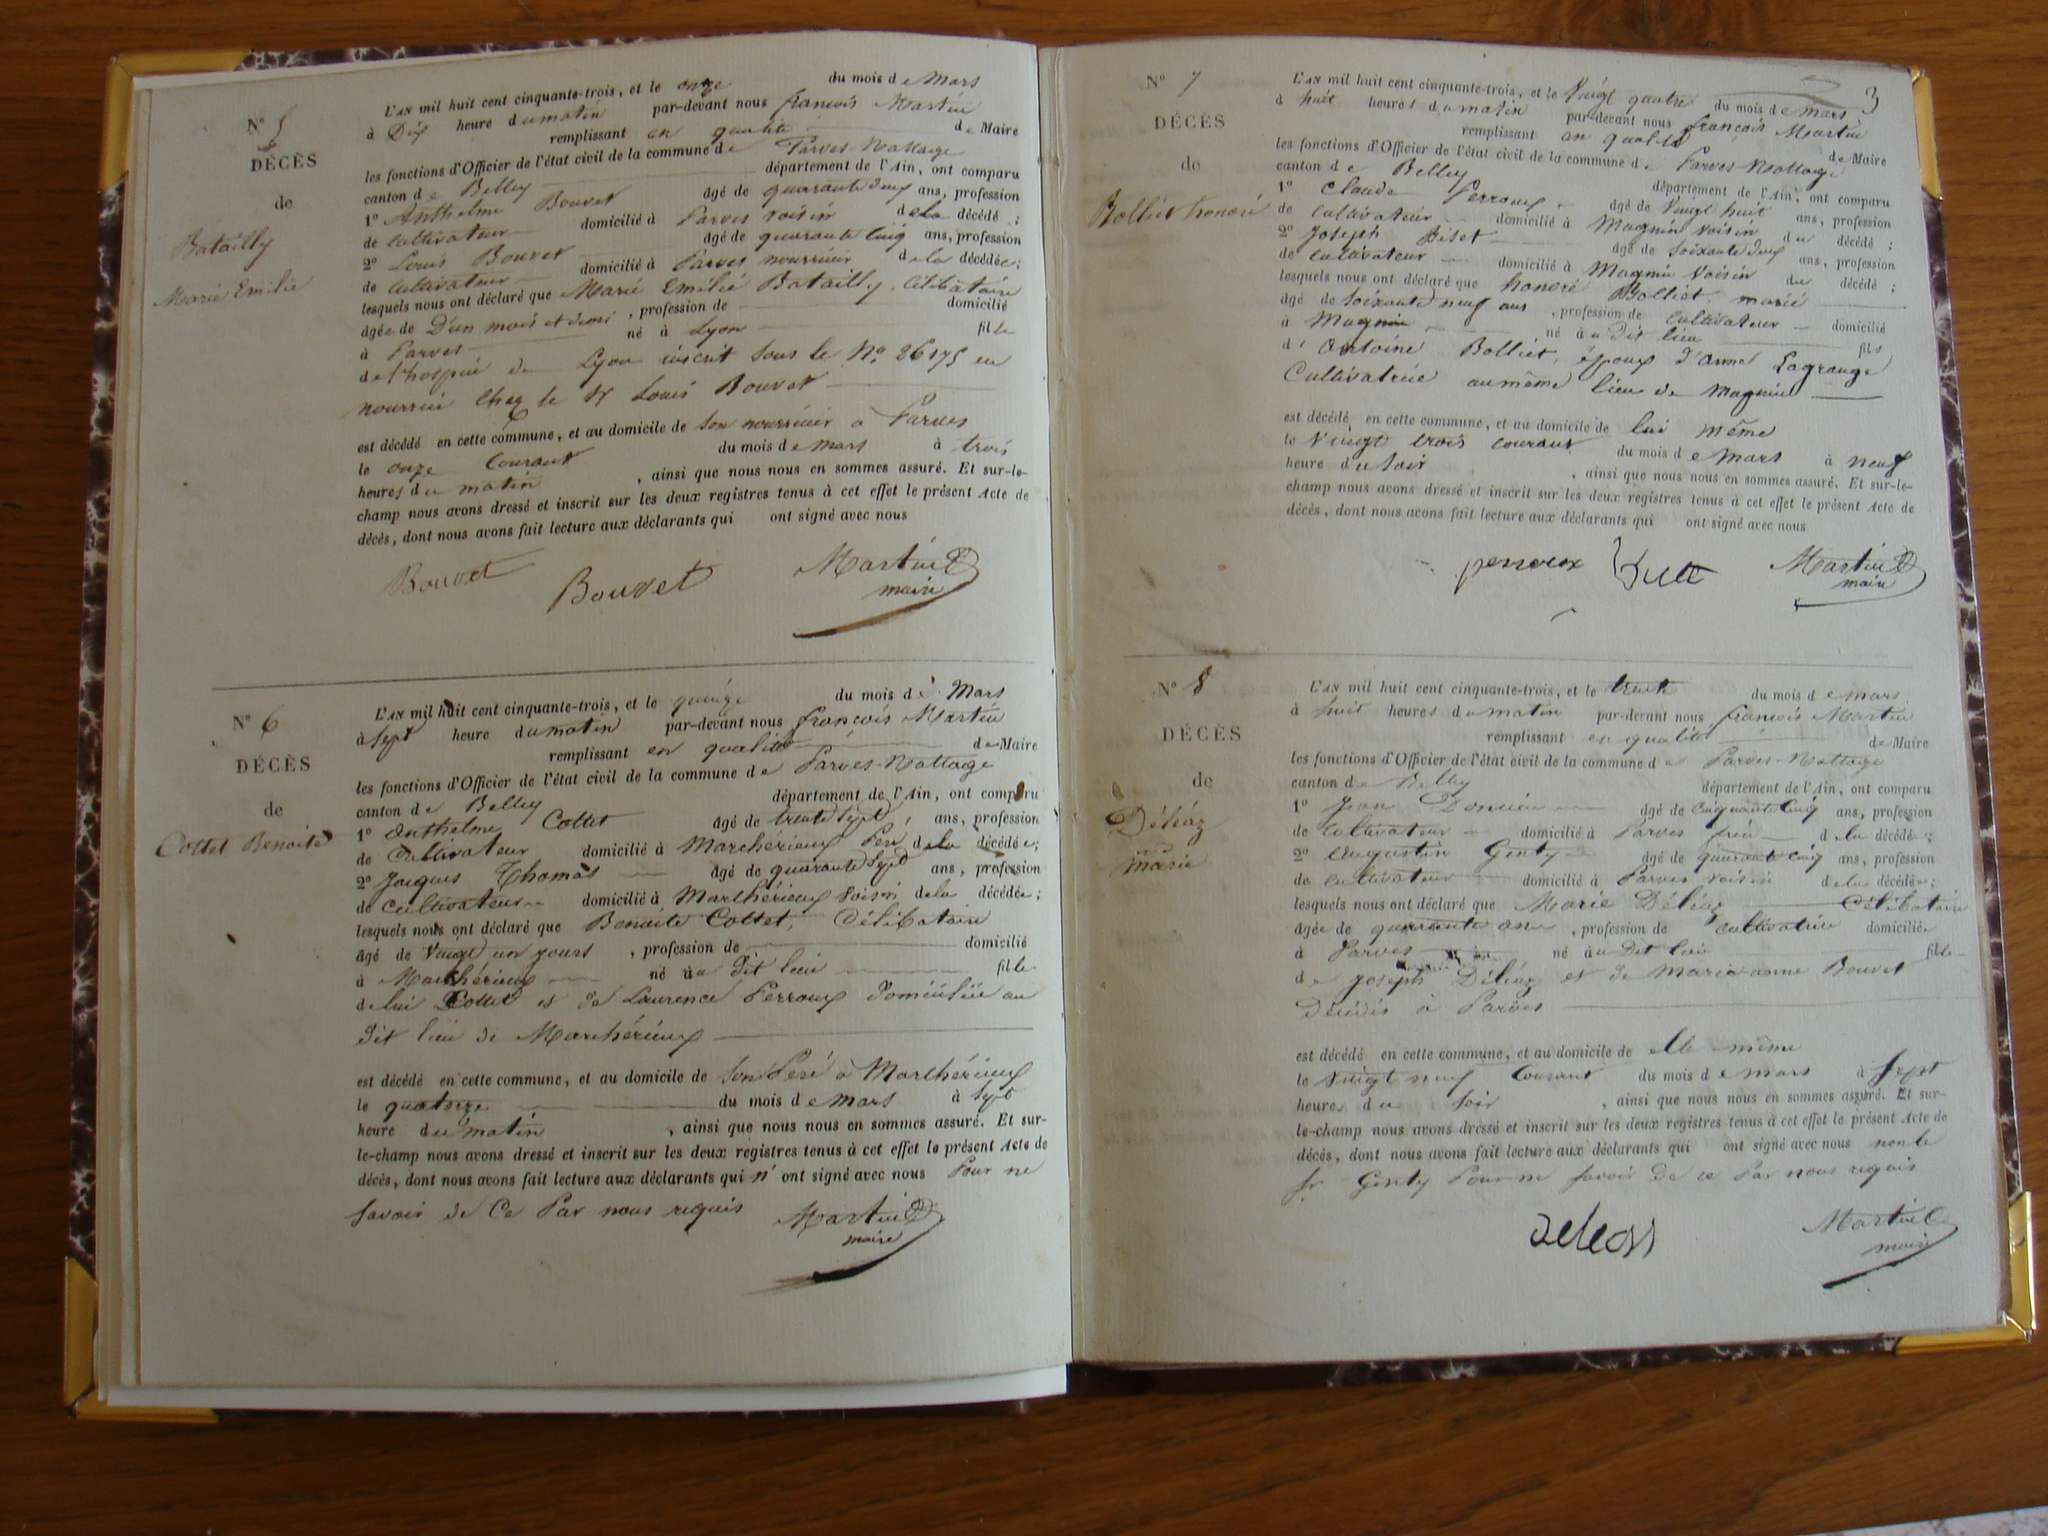 N° 5
DÉCÈS
de
Batailly
Marie Emilie
L'AN mil huit cent cinquante-trois, et le onze du mois de Mars
à Dix heure du matin par-devant nous françois Martin
remplissant en qualité de Maire
les fonctions d'Officier de l'état civil de la commune de Parves-Nattage
canton de Belley département de l'Ain, ont comparu
1° Anthelme Bouvet âgé de quarante deux ans, profession
de cultivateur domicilié à Parves voisin de la décédé ;
2° Louis Bouvet âgé de quarante cinq ans, profession
de cultivateur domicilié à Parves nourricier de la décédée ;
lesquels nous ont déclaré que Marie Emilie Batailly, Célibataire
âgée de D'un mois et demi, profession de domicilié
à Parves né à Lyon fille
de l'hospice de Lyon inscrit sous le N° 86175 en
nourrice chez le Sr Louis Bouvet
est décédé en cette commune, et au domicile de son nourricier à Parves
le onze courant du mois de mars à trois
heures du matin, ainsi que nous nous en sommes assuré. Et sur-le-
champ nous avons dressé et inscrit sur les deux registres tenus à cet effet le présent Acte de
décès, dont nous avons fait lecture aux déclarants qui ont signé avec nous
Bouvet Bouvet Martin
maire
N° 6
DÉCÈS
de
Cottet Benoite
L'AN mil huit cent cinquante-trois, et le quinze du mois de Mars
à sept heure du matin par-devant nous françois Martin
remplissant en qualité de Maire
les fonctions d'Officier de l'état civil de la commune de Parves-Nattage
canton de Belley département de l'Ain, ont comparu
1° Anthelme Cottet âgé de trente sept, ans, profession
de Cultivateur domicilié à Marchérieux Père de la décédée ;
2° Jacques Thomas âgé de quarante sept ans, profession
de cultivateur domicilié à Marchérieux voisin de la décédée ;
lesquels nous ont déclaré que Benoite Cottet, Célibataire
âgé de Vingt un jours, profession de domicilié
à Marchérieux né au Dit lieu fille
de lui Cottet et de Laurence Perroux Domiciliée au
Dit lieu de Marchérieux
est décédé en cette commune, et au domicile de son Père à Marchérieux
le quatorze du mois de mars à sept
heure du matin, ainsi que nous nous en sommes assuré. Et sur-
le-champ nous avons dressé et inscrit sur les deux registres tenus à cet effet le présent Acte de
décès, dont nous avons fait lecture aux déclarants qui n'ont signé avec nous Pour ne
savoir de Ce Par nous requis Martin
maire
3
N° 7
DÉCÈS
de
Bolliet honoré
L'AN mil huit cent cinquante-trois, et le Vingt quatre du mois de Mars
à huit heures du matin par-devant nous françois Martin
remplissant en qualité de Maire
les fonctions d'Officier de l'état civil de la commune de Parves-Nattage
canton de Belley département de l'Ain, ont comparu
1° Claude Perroux âgé de Vingt huit ans, profession
de cultivateur domicilié à Magnin voisin du décédé ;
2° Joseph Biset âgé de soixante deux ans, profession
de cultivateur domicilié à Magnin voisin du décédé ;
lesquels nous ont déclaré que honoré Bolliet, marié
âgé de soixante neuf ans, profession de cultivateur domicilié
à Magnin né au Dit lieu fils
d'Antoine Bolliet, époux d'anne Lagrange
Cultivatrice au même lieu de Magnin
est décédé en cette commune, et au domicile de lui même
le Vingt trois courant du mois de Mars à neuf
heure du soir, ainsi que nous nous en sommes assuré. Et sur-le-
champ nous avons dressé et inscrit sur les deux registres tenus à cet effet le présent Acte de
décès, dont nous avons fait lecture aux déclarants qui ont signé avec nous
perroux Martin
maire
N° 8
DÉCÈS
de
Déléaz
Marie
L'AN mil huit cent cinquante-trois, et le trente du mois de mars
à huit heures du matin par-devant nous françois Martin
remplissant en qualité de Maire
les fonctions d'Officier de l'état civil de la commune de Parves-Nattage
canton de Belley département de l'Ain, ont comparu
1° Jean âgé de cinquante cinq ans, profession
de cultivateur domicilié à Parves de la décédée ;
2° Augustin Genty âgé de quarante cinq ans, profession
de cultivateur domicilié à Parves voisin de la décédée ;
lesquels nous ont déclaré que Marie Déléaz Célibataire
âgée de quarante ans, profession de cultivatrice domiciliée
à Parves né au Dit lieu fille
de Joseph Déléaz et de Marie anne Bouvet
Décédés à Parves
est décédé en cette commune, et au domicile de elle même
le vingt neuf courant du mois de mars à sept
heures du soir, ainsi que nous nous en sommes assuré. Et sur-
le-champ nous avons dressé et inscrit sur les deux registres tenus à cet effet le présent Acte de
décès, dont nous avons fait lecture aux déclarants qui ont signé avec nous non le
sr Genty Pour ne savoir de ce Par nous requis
Martin
maire